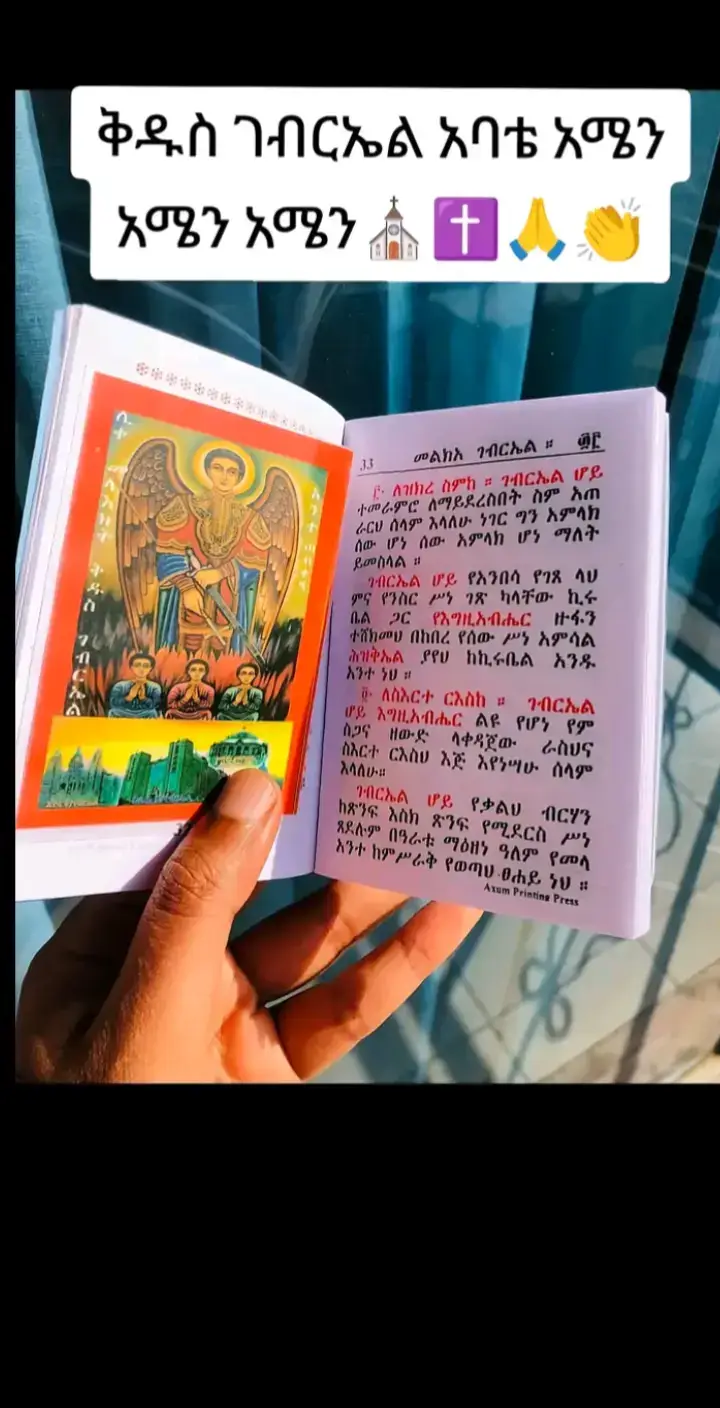 ቅዱስ ገብርኤል አባቴ አሜን
አሜን አሜን⛪✝️🙏👏
33 መልክአ ገብርኤል ። ፴፫
፫· ለዝክረ ስምከ ። ገብርኤል ሆይ
ተመራምሮ ለማይደረስበት ስም አጠ
ራርህ ሰላም እላለሁ ነገር ግን አምላክ
ሰው ሆነ ሰው አምላክ ሆነ ማለት
ይመስላል ።
ገብርኤል ሆይ የአንበሳ የገጸ ላህ
ምና የንስር ሥነ ገጽ ካላቸው ኪሩ
ቤል ጋር የእግዚአብሔር ዙፋን
ተሸክመህ በከበረ የሰው ሥነ አምሳል
ሕዝቅኤል ያየህ ከኪሩቤል አንዱ
አንተ ነህ ።
ለስእርተ ርእስከ ። ገብርኤል
ሆይ እግዚአብሔር ልዩ የሆነ የም
ስጋና ዘውድ ላቀዳጀው ራስህና
ስእርተ ርእስህ እጅ እየነሣሁ ሰላም
እላለሁ።
ገብርኤል ሆይ የቃልህ ብርሃን
ከጽንፍ እስከ ጽንፍ የሚደርስ ሥነ
ጸዳሉም በዓራቱ ማዕዘነ ዓለም የመላ
አንተ ከምሥራቅ የወጣህ ፀሐይ ነህ ።
Axum Printing Press
መላእክት ቅዱስ ገብርኤል